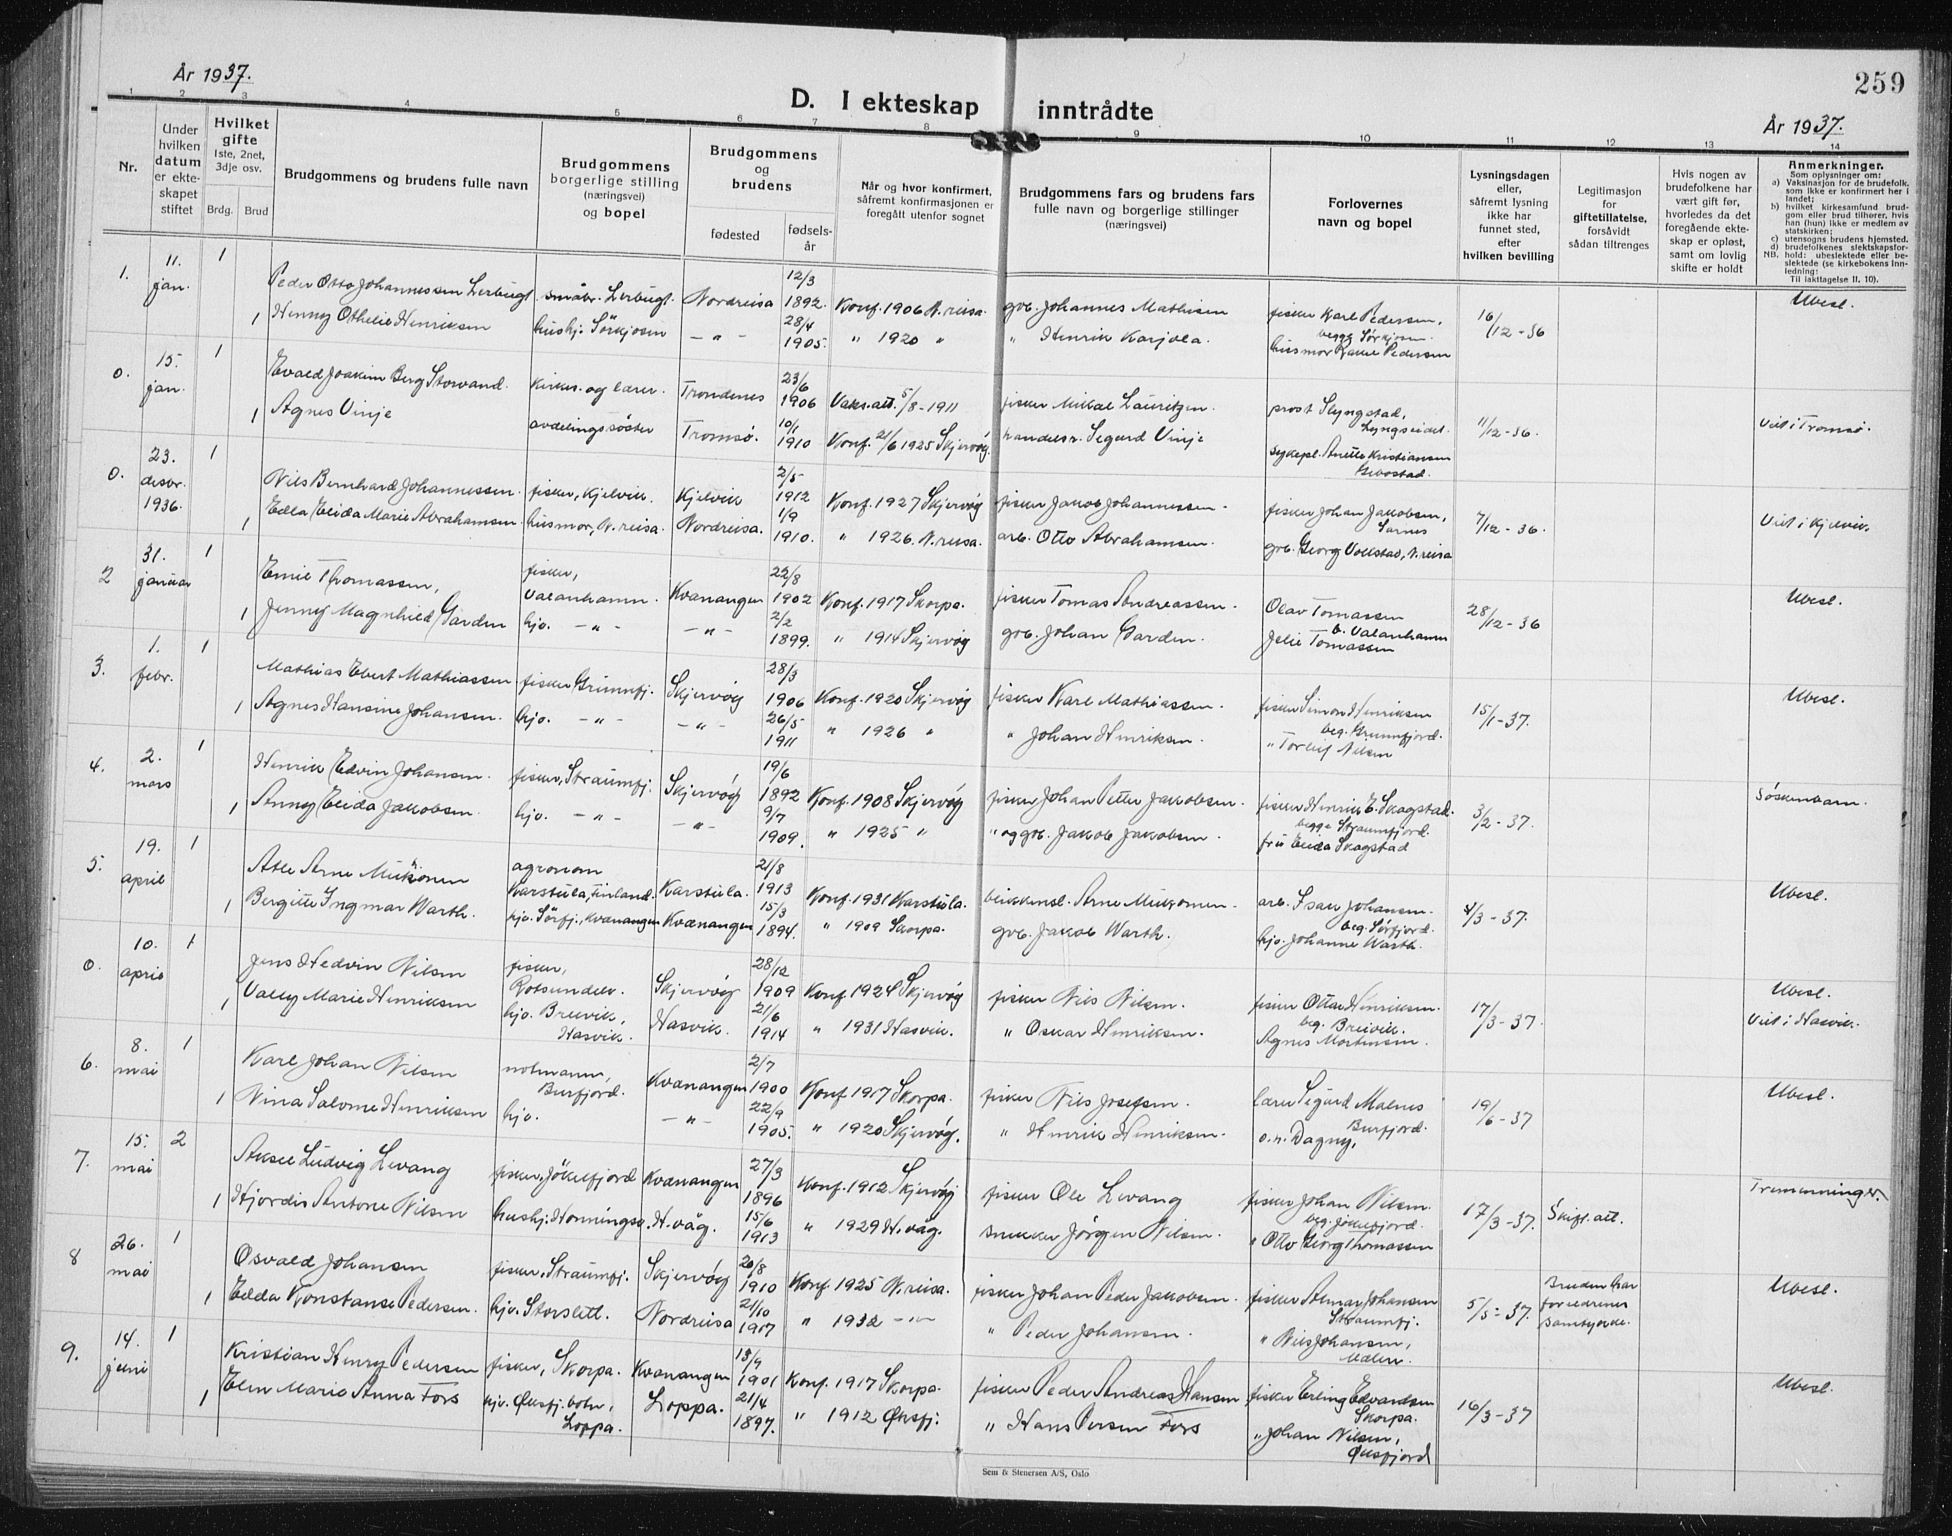 259
År 1937.
D. I ekteskap inntrådte
År 1937.
1 2 3 4 5 6 7 8 9 10 11 12 13 14
Nr.
Under hvilken datum er ekteskapet stiftet
Hvilket gifte
1ste, 2net, 3dje osv.
Brdg. Brud
Brudgommens og brudens fulle navn
Brudgommens borgerlige stilling (næringsvei) og bopel
Brudgommens og brudens
fødested
fødselsår
Når og hvor konfirmert, såfremt konfirmasjonen er foregått utenfor sognet
Brudgommens fars og brudens fars fulle navn og borgerlige stillinger (næringsvei)
Forlovernes navn og bopel
Lysningsdagen eller, såfremt lysning ikke har funnet sted, efter hvilken bevilling
Legitimasjon for giftetillatelse, forsåvidt sådan tiltrenges
Hvis nogen av brudefolkene har vært gift før, hvorledes da det foregående ekteskap er opløst, samt om lovlig skifte er holdt
Anmerkninger.
Som oplysninger om:
a) Vaksinasjon for de brudefolk. som ikke er konfirmert her i landet;
b) hvilket kirkesamfund brudgom eller brud tilhører, hvis han (hun) ikke er medlem av statskirken;
c) utensogns brudens hjemsted.
d) brudefolkenes slektskapsforhold: ubeslektede eller beslektede (se kirkebokens Innledning:
NB. Til iakttagelse II. 10).
1. 11. jan. 1 Peder Otto Johannessen Lerbugt småbr. Lerbugt. Nordreisa 12/3 1892. Konf. 1906 N. reisa. gbr. Johannes Mathisen fisker Karl Pedersen, begge Sørkjosen. 16/12-36 Ubesl.
1 Henny Othelie Henriksen hushj. Sørkjosen -"- 28/4 1905. " 1920 " " Henrik Karjola. husmor Rakel Pedersen
0. 15. jan. 1 Evald Joakim Berg Storvand. kirkes. og lærer. Trondenes 23/6 1906 Vaks.att. 5/8-1911 fisker Mikal Lauritzen. prost Slyngstad, Lyngseidet. 11/12-36. Viet i Tromsø.
1 Agnes Vinje avdelingssøster Tromsø. 10/1 1910 Konf. 21/6 1925 Skjervøy. handelsr. Segurd Vinje sykepl. Anette Kristiansen Gibostad.
0. 23. desbr. 1936. 1 Nils Bernhard Johannessen. fisker, Kjelvik. Kjelvik 2/5 1912 Konf. 1927 Skjervøy fisker Jakob Johannessen. fisker Johan Jakobsen, Sarnes 7/12-36. Viet i Kjelvik.
1 Edla Elida Marie Abrahamsen. husmor, N. reisa. Nordreisa. 1/9 1910. " 1926. N. reisa. arb. Otto Abrahamsen. gbr. Georg Vollstad, N. reisa
2 31. januar 1 Emil Thomassen, fisker, Valanhamn. Kvænangen 22/8 1902 Konf. 1917 Skorpa. fisker Tomas Andreassen. Olav Tomassen b. Valanhamn 28/12-36 Ubesl.
1 Jenny Magnhild Garden hjv. -"- -"- 2/2 1899. " 1914 Skjervøy gbr. Johan Garden. Jelie Tomassen
3. 1. febr. 1 Mathias Ebert Mathiassen fisker Grunnfj. Skjervøy 28/3 1906 Konf. 1920 Skjervøy fisker Karl Mathiassen. fisker Simon Henriksen beg. Grunnfjord. 15/1-37. Ubesl.
1 Agnes Hansine Johansen. hjv. -"- -"- 26/5 1911 " 1926 " " Johan Henriksen. " Torleif Nilsen
4. 2. mars 1 Henrik Edvin Johansen. fisker, Straumfj. Skjervøy 19/6 1892 Konf. 1908 Skjervøy fisker Johan Petter Jakobsen. fisker Henrik E. Skogstad. begge Straumfjord. 3/2-37. Søskenbarn.
1 Anny Elida Jakobsen. hjv. -"- -"- 9/7 1909. " 1925 " " og gbr. Jakob Jakobsen. fru Elida Skogstad
5. 19. april 1 Atle Arne Mukönen agronom Karstula, Finland. Karstula. 21/8 1913 Konf. 1931 Karstula. blikkensl. Arne Mukonen. arb. Isak Johansen. beg. Sørfjord. 4/3-37. Ubesl.
1 Bergitte Ingmar Warth. hjv. Sørfj., Kvænangen Kvænangen 15/3 1894. " 1909 Skorpa. gbr. Jakob Warth. hjv. Johanne Warth.
0. 10. april 1 Jens Hedvin Nilsen fisker, Rotsundelv. Skjervøy 28/12 1909 Konf. 1924 Skjervøy fisker Nils Nilsen. fisker Ottar Henriksen. beg. Breivik. 17/3-37. Ubesl.
1 Vally Marie Henriksen hjv. Breivik, Hasvik. Hasvik. 21/6 1914 " 1931 Hasvik. " Oskar Henriksen. Agnes Mortensen. Viet i Hasvik.
6. 8. mai 1 Karl Johan Nilsen notmann, Burfjord. Kvænangen 2/7 1900 Konf. 1917 Skorpa. fisker Nils Josefsen. lærer Sigurd Malnes Burfjord. 19/6-37 Ubesl.
1 Nina Salome Henriksen hjv. -"- 22/9 1905. " 1920 Skjervøy. " Henrik Henriksen. o.n. Dagny,
7. 15. mai 2 Aksel Ludvig Levang fisker, Jökelfjord Kvænangen 27/3 1896 Konf. 1912 Skjervøy fisker Ole Levang fisker Johan Nilsen. beg. Jökelfjord. 17/3-37. Skift. att. Tremenninger.
1 Hjordis Antone Nilsen hushj. Honningsv. H. våg. 15/6 1913 " 1929 H. våg. snekker Jørgen Nilsen. " Otto Georg Thomassen
8 26. mai 1 Osvald Johansen fisker, Straumfj. Skjervøy 20/8 1910 Konf. 1925 N. reisa. fisker Johan Peder Jakobsen. fisker Almar Johansen Straumfj. 5/5-37. Bruden har foreldrenes samtykke. Ubesl.
1 Edda Konstanse Pedersen. hjv. Storslett. Nordreisa 21/10 1917 " 1932 -"- " Peder Johansen. " Nils Johansen,
9. 14. juni 1 Kristian Henry Pedersen fisker, Skorpa. Kvænangen 13/9 1901 Konf. 1917 Skorpa. fisker Peder Andreas Hansen fisker Erling Edvardsen Skorpa. 16/3-37 Ubesl.
1 Elen Marie Anna Fors hjv. Øksfj. botn, Loppa. Loppa. 21/4 1897. " 1912 Øksfj. " Hans Persen Fors " Johan Nilsen, Øksfjord
Sem & Stenersen A/S, Oslo